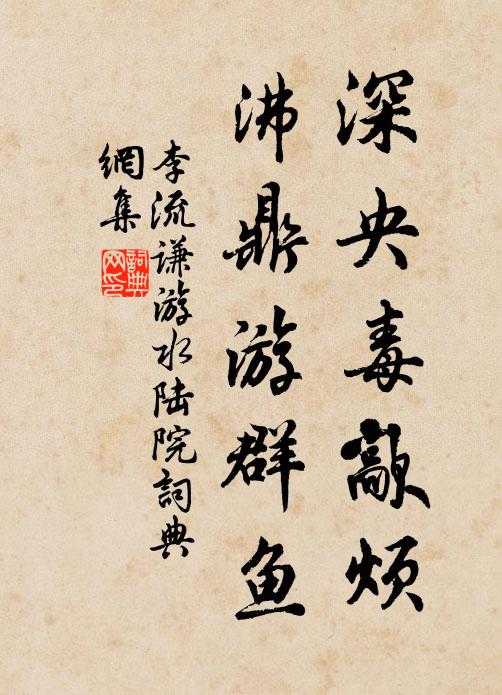 深央毒歊烦
沸鼎游群鱼
李流谦游水陆院詞典
網集
詞典
网印